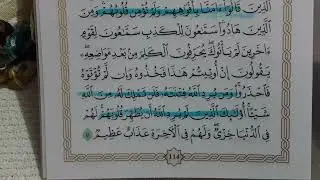 الَّذِينَ قَالُوا ءَامَنَّا بِأَفْوَاهِهِمْ وَلَمْ تُؤْمِن قُلُوبُهُمْ وَمِنَ
الَّذِينَ هَادُوا سَمَّاعُونَ لِلْكَذِبِ سَمَّاعُونَ لِقَوْمٍ
ءَاخَرِينَ لَمْ يَأْتُوكَ يُحَرِّفُونَ الْكَلِمَ مِن بَعْدِ مَوَاضِعِهِ
يَقُولُونَ إِنْ أُوتِيتُمْ هَذَا فَخُذُوهُ وَإِن لَّمْ تُؤْتَوْهُ
فَاحْذَرُوا وَمَن يُرِدِ اللَّهُ فِتْنَتَهُ فَلَن تَمْلِكَ لَهُ مِنَ اللَّهِ
شَيْئًا أُولَئِكَ الَّذِينَ لَمْ يُرِدِ اللَّهُ أَن يُطَهِّرَ قُلُوبَهُمْ لَهُمْ
فِي الدُّنْيَا خِزْيٌ وَلَهُمْ فِي الْآخِرَةِ عَذَابٌ عَظِيمٌ
114